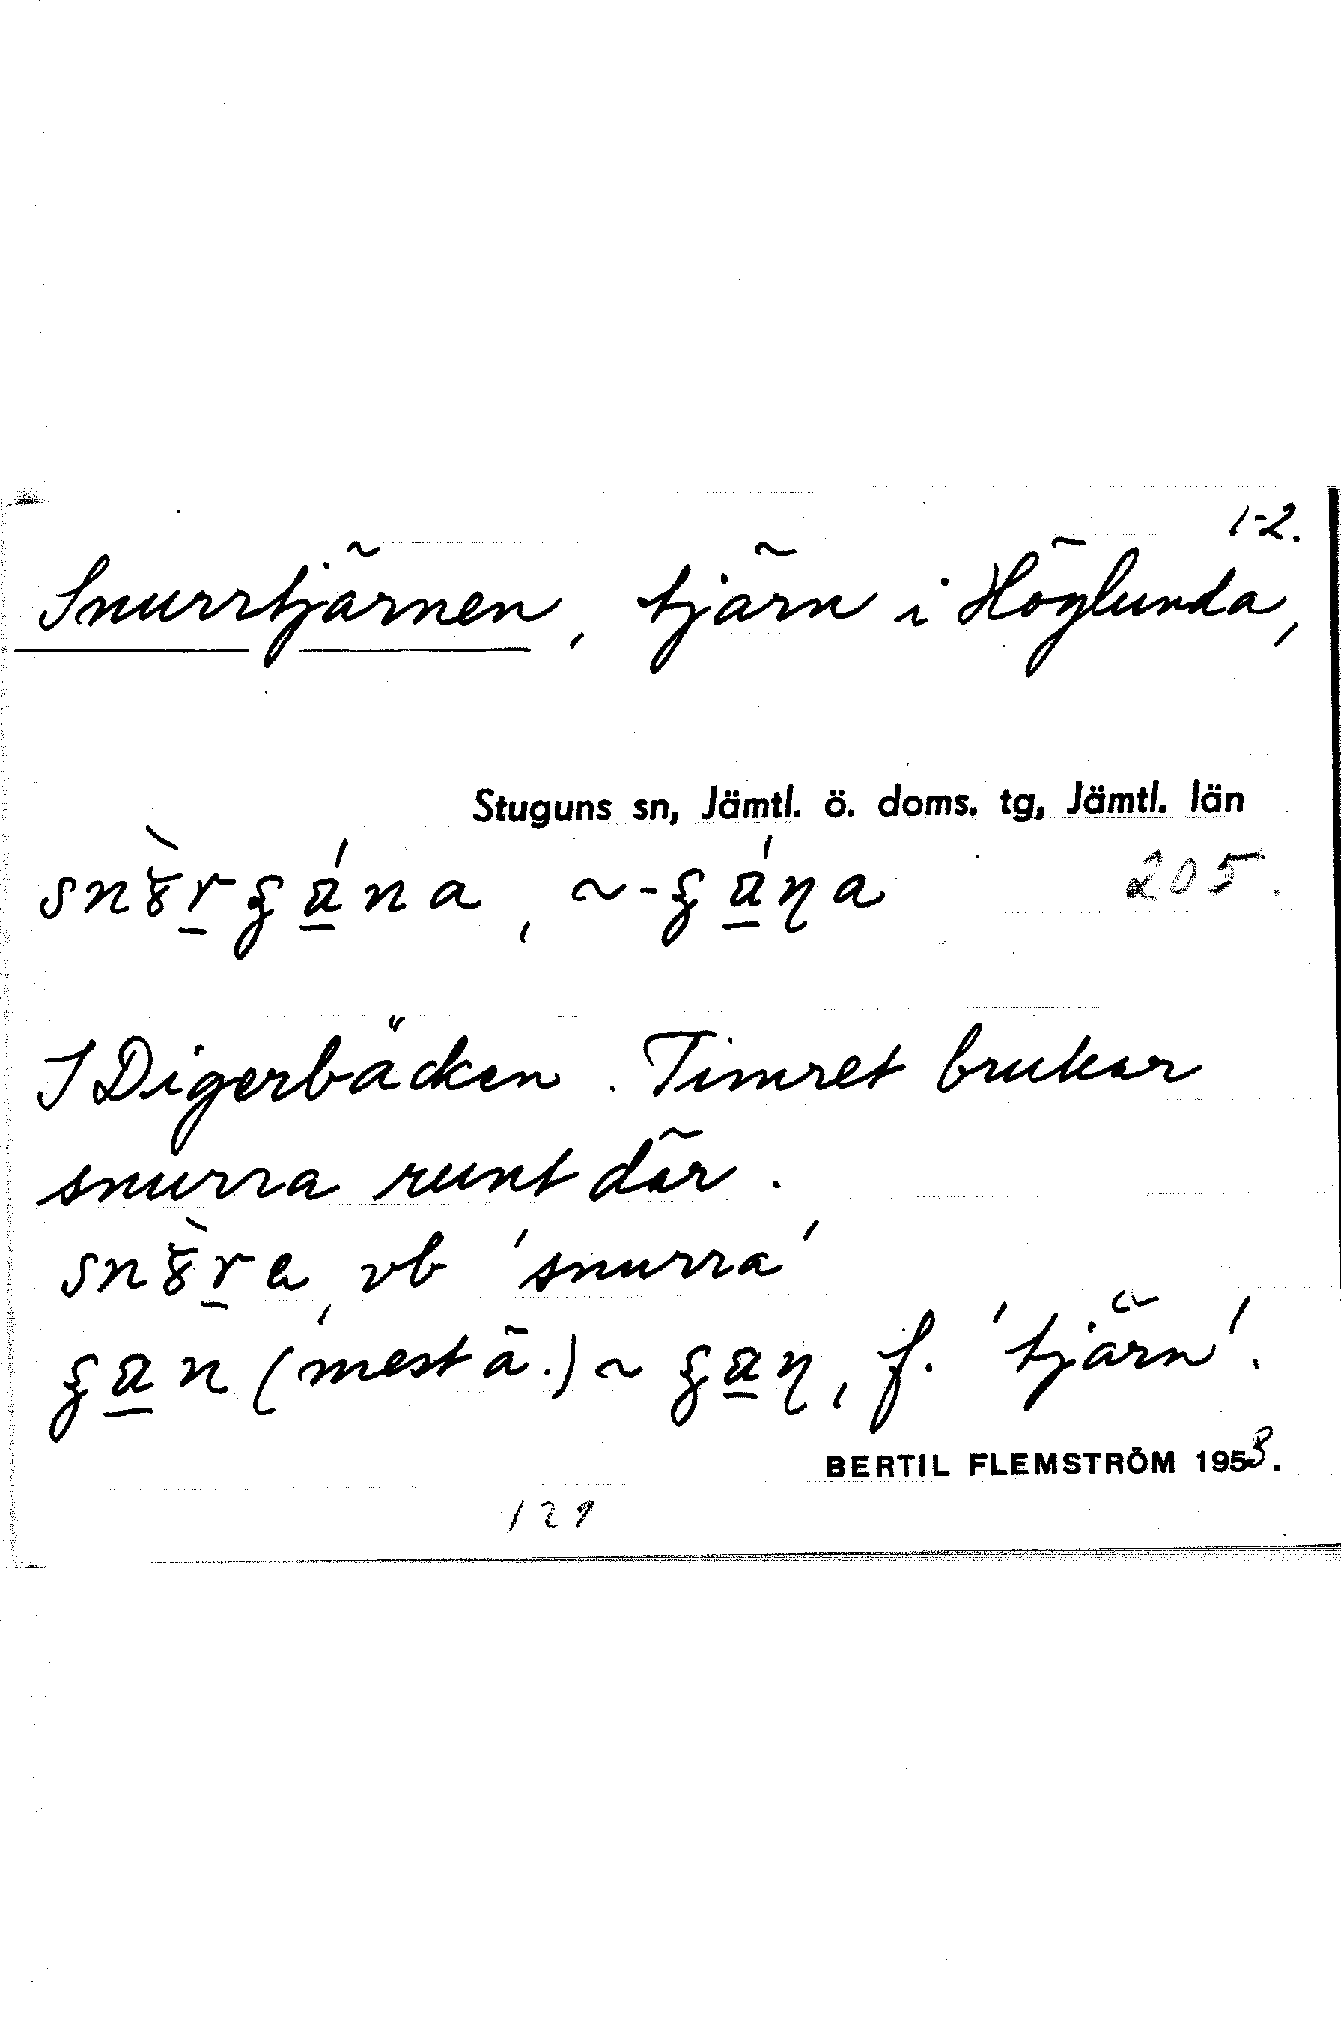 1-2.
Snurrtjärnen, tjärn i Höglunda,
Stuguns sn, Jämtl. ö. doms. tg, Jämtl. län
205.
I Digerbäcken. Timret brukar
snurra runt där.
vb 'snurra'
(mest ä.) ~ f. 'tjärn'.
BERTIL FLEMSTRÖM 1953.
129